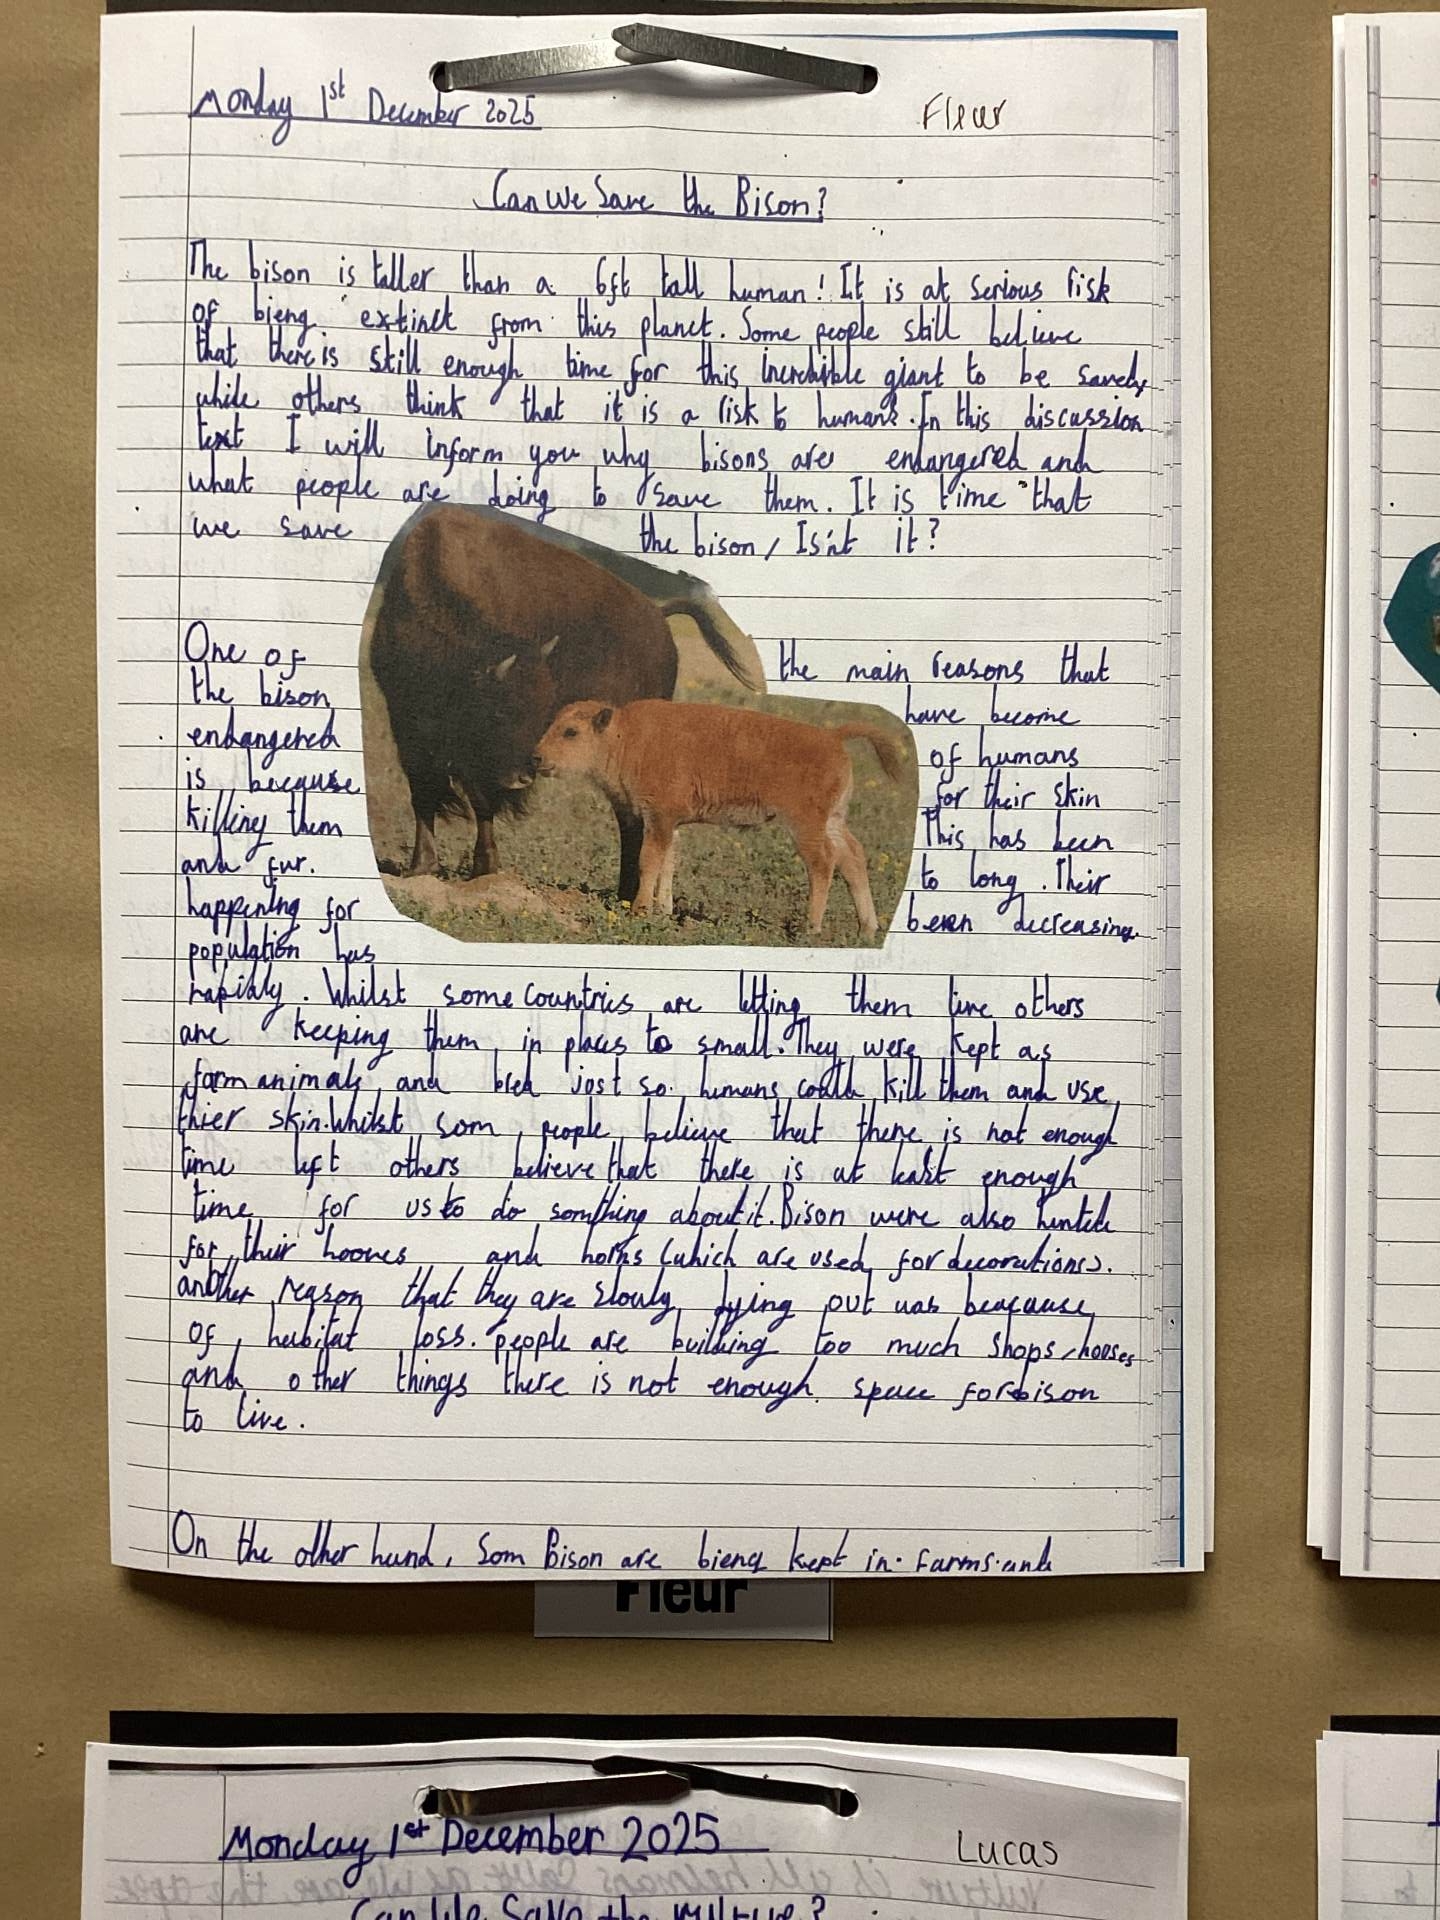 Monday 1st December 2025
Fleur
Can We Save the Bison?
The bison is taller than a 6ft tall human! It is at serious risk
of bieng extinct from this planet. Some people still believe
that there is still enough time for this incredible giant to be saved,
while others think that it is a risk to humans. In this discussion
text I will inform you why bisons are endangered and
what people are doing to save them. It is time that
we save the bison, Isn't it?
One of the main reasons that
the bison have become
endangered of humans
is because for their skin
killing them This has been
and fur. to long. Their
happening for been decreasing
population has
rapidly. Whilst some countries are letting them live others
are keeping them in places to small. They were kept as
farm animals and bred jost so humans could kill them and use
thier skin. Whilst som people believe that there is not enough
time left others believe that there is at least enough
time for us to do somthing about it. Bison were also hunted
for their hooves and horns (which are used for decorations).
another reason that they are slowly dying out was beacause
of habitat loss. people are building too much shops, hooses
and other things there is not enough space for bison
to live.
On the other hand, Som Bison are bieng kept in farms and
Fleur
Monday 1st December 2025
Lucas
Can We Save the vulture?